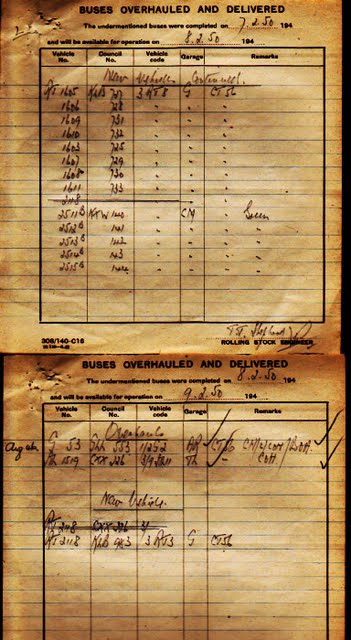 BUSES OVERHAULED AND DELIVERED
The undermentioned buses were completed on 7.2.50 194
and will be available for operation on 8.2.50 194
Vehicle No. Council No. Vehicle code Garage Remarks
New Vehicles Continued.
RT 1605 KLB 727 3 RT8 G CT56
1606 728 " " "
1609 731 " " "
1610 732 " " "
1603 725 " " "
1607 729 " " "
1608 730 " " "
1611 733 " " "
2118
2511 KXW 140 CM Green
2512 141 " "
2513 142 " "
2514 143 " "
2515 144 " "
309/140-C16
ROLLING STOCK ENGINEER
BUSES OVERHAULED AND DELIVERED
The undermentioned buses were completed on 8.2.50 194
and will be available for operation on 9.2.50 194
Vehicle No. Council No. Vehicle code Garage Remarks
Overhauls
G 53 553 AR CT56
1519 CXX 226 Th " COH.
New Vehicles.
RT 2118 CXX 226
RT 2118 KLB 983 3 RT3 G CT56